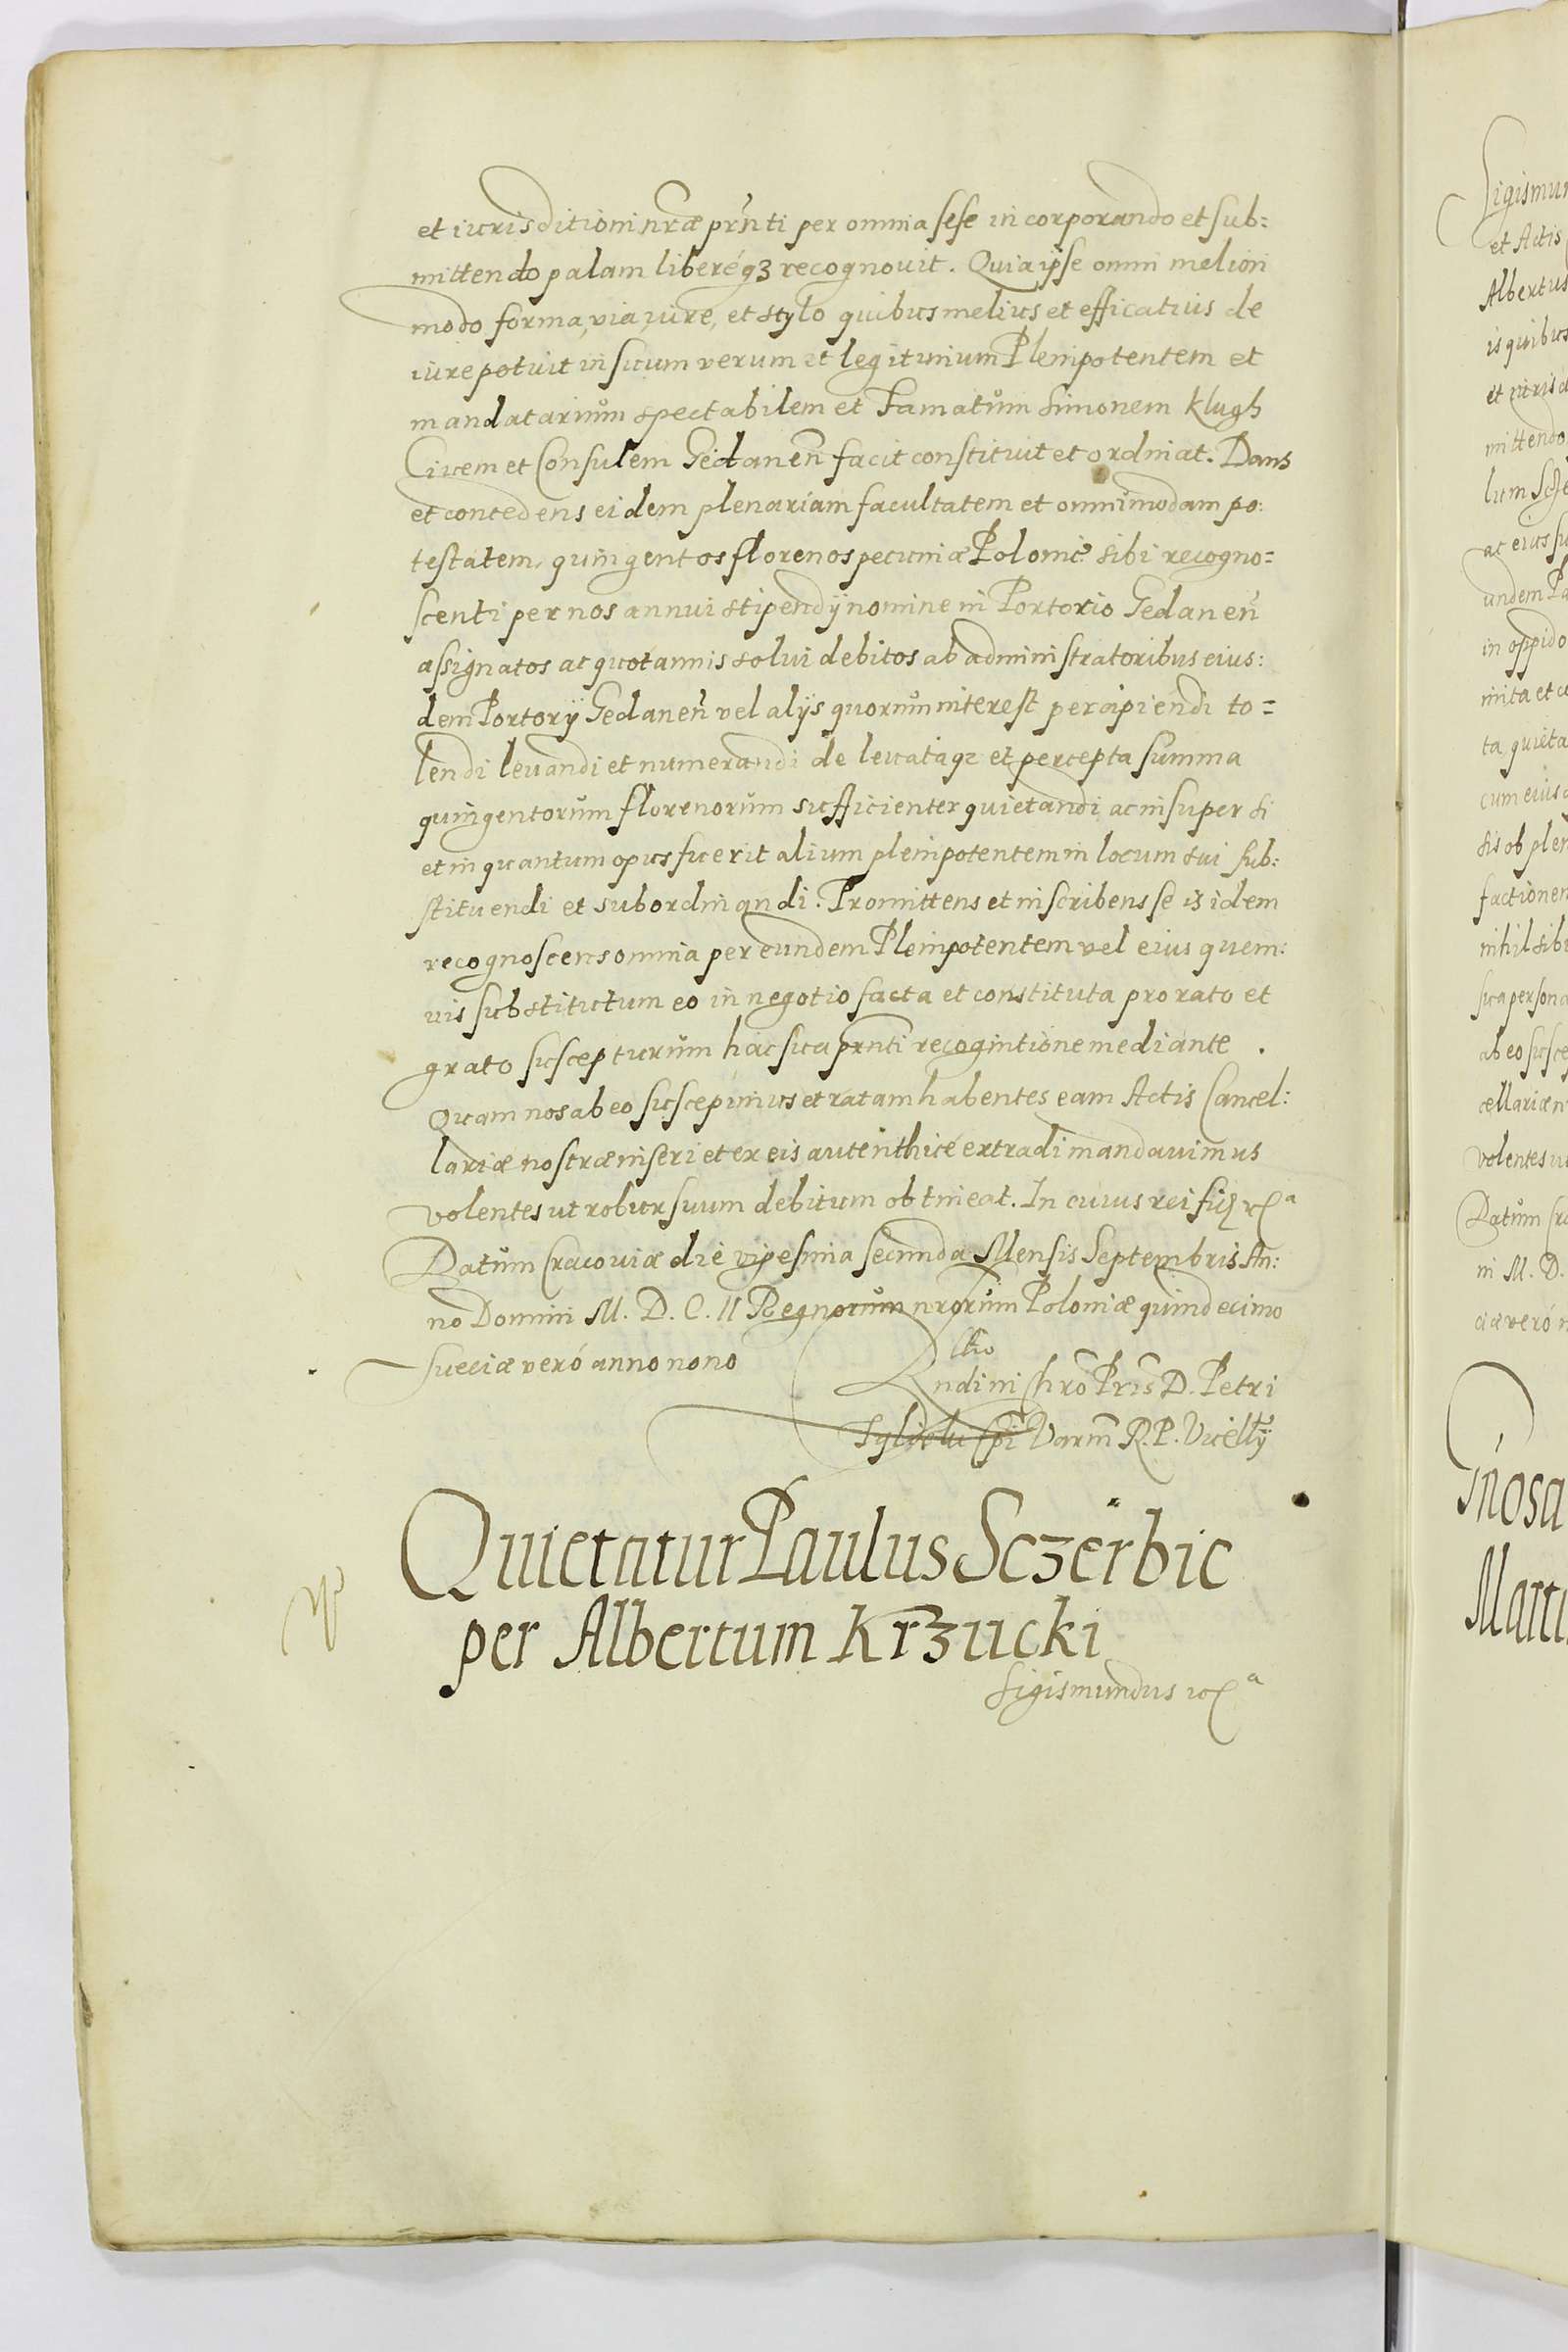 et iurisditioni nr̃æ prñti per omnia sese incorporando et sub:
mittendo palam liberéqz recognouit. Quia ipse omni meliori
modo forma, via, iure, et stylo quibus melius et efficatius de
iure potuit in suum verum et legitimum Plenipotentem et
mandatarium spectabilem et Famatum Simonem Klugh
Civem et Consulem Gedaneñ facit constituit et ordinat. Dans
et contedens eidem plenariam facultatem et omnimodam po:
testatem, quingentos florenos pecuniæ Polonic̃ sibi recogno=
scenti per nos annui stipendij nomine in Portorio Gedaneñ
assignatos at quotannis solui debitos ab administratoribus eius:
dem Portorij Gedaneñ vel alijs quorum interest percipiendi to=
lendi leuandi et numerandi de leuataqz et percepta summa
quingentorum florenorum sufficienter quietandi, ac insuper si
et in quantum opus fuerit alium plenipotentem in locum sui sub:
stituendi et subordinandi. Promittens et inscribens se is idem
recognoscens omnia per eundem Plenipotentem vel eius quem:
uis substitutum eo in negotio facta et constituta pro rato et
grato suscepturum hac sua prñti recognitione mediante.
Quam nos ab eo suscepimus et ratam habentes eam Actis Cancel:
lariæ nostræ inseri et ex eis autenthicé extradi mandauimus
volentes ut robur suum debitum obtineat. In cuius rei fid
Datum Cracouiæ die vigesima secunda Mensis Septembris An:
no Domini M. D. C. II Regnorum nrorum Poloniæ quindecimo
Sueciæ veró anno nono
Rndi in Chro Pris D. Petri
Tylicki Epi Varm R. P. Vicellrij
Quietatur Paulus Sczerbic
per Albertum Krzucki
Sigismundus
Sigismun
et Actis
Albertus
is quibus
et iuris d
mittendo
lum Scze
ac eius su
undem Pa
in oppido
nita et co
ta quieta
cum eius
sis ob plen
factionem
nihil sibi
sua persona
ab eo susce
cellariæ n
volentes ut
Datum Cra
ni M. D.
ciæ veró n
Gnosa
Marti